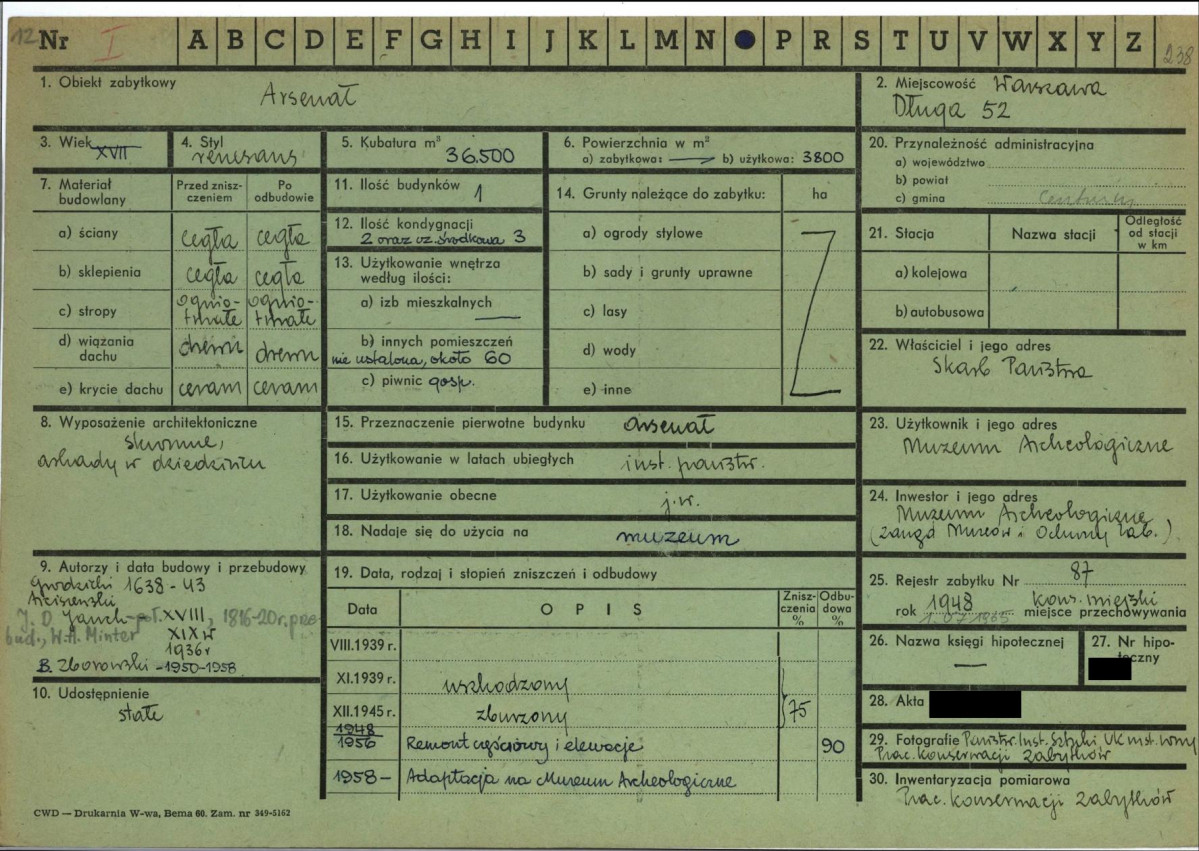 12 Nr I A B C D E F G H I J K L M N P R S T U V W X Y Z 238
1. Obiekt zabytkowy
Arsenał
2. Miejscowość Warszawa
Długa 52
3. Wiek XVII
4. Styl
renesans
5. Kubatura m³
36.500
6. Powierzchnia w m²
a) zabytkowa: — b) użytkowa: 3800
20. Przynależność administracyjna
a) województwo
b) powiat
c) gmina
7. Materiał budowlany
Przed zniszczeniem
Po odbudowie
a) ściany cegła cegła
b) sklepienia cegła cegła
c) stropy ognio-trwałe ognio-trwałe
d) wiązania dachu drewn drewn
e) krycie dachu ceram ceram
11. Ilość budynków 1
12. Ilość kondygnacji
2 oraz cz. środkowa 3
13. Użytkowanie wnętrza
według ilości:
a) izb mieszkalnych
—
b) innych pomieszczeń
nie ustalona, około 60
c) piwnic gosp.
14. Grunty należące do zabytku: ha
a) ogrody stylowe
b) sady i grunty uprawne
c) lasy
d) wody
e) inne
21. Stacja
Nazwa stacji
Odległość od stacji w km
a) kolejowa
b) autobusowa
22. Właściciel i jego adres
Skarb Państwa
8. Wyposażenie architektoniczne
skromne,
arkady w dziedzińcu
15. Przeznaczenie pierwotne budynku arsenał
16. Użytkowanie w latach ubiegłych inst. państw.
17. Użytkowanie obecne j.w.
18. Nadaje się do użycia na muzeum
23. Użytkownik i jego adres
Muzeum Archeologiczne
24. Inwestor i jego adres
Muzeum Archeologiczne
(Zarząd Muzeów i Ochrony Zab.)
9. Autorzy i data budowy i przebudowy
Grodzicki 1638-43
J. D. Jauch - poł. XVIII, 1816-20 r. prze-
bud., W.H. Minter XIX w
1936 r
B. Zborowski - 1950-1958
10. Udostępnienie
stałe
19. Data, rodzaj i stopień zniszczeń i odbudowy
Data
OPIS
Zniszczenia %
Odbudowa %
VIII.1939 r.
XI.1939 r. uszkodzony
XII.1945 r. zburzony 75
1948
1956 Remont częściowy i elewacje 90
1958 — Adaptacja na Muzeum Archeologiczne
25. Rejestr zabytku Nr 87
rok 1948 kons. miejski
1.07.1965 miejsce przechowywania
26. Nazwa księgi hipotecznej
—
27. Nr hipoteczny
28. Akta
29. Fotografie Państw. Inst. Sztuki
Prac. Konserwacji Zabytków
30. Inwentaryzacja pomiarowa
Prac. Konserwacji Zabytków
CWD — Drukarnia W-wa, Bema 60. Zam. nr 349-5162